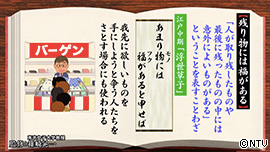 「残り物には福がある」
「人が取り残したものや
最後に残ったものの中には
意外によいものがある」
ということを表すことわざ
江戸中期『浮世草子』
あまり物には
福があると申せば
我先に欲しいものを
手にしようと争う人たちを
さとす場合にも使われる
バーゲン
©NTV